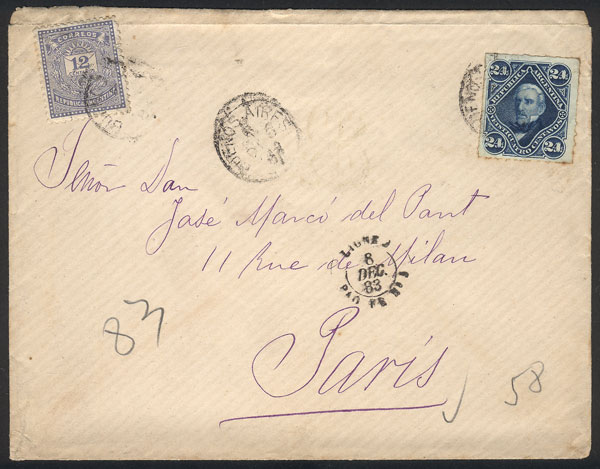 CORREOS
12
REPUBLICA
24 24
REPUBLICA ARGENTINA
VEINTICUATRO CENTAVOS
24 24
BUENOS AIRES
Señor Don
José Marcó del Pont
11 Rue de Milan
LIGNE J
8
DEC.
83
PAQ. FR.
París
83
58